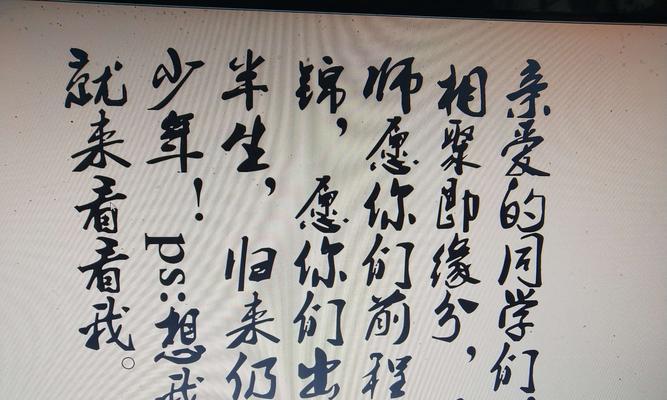 亲爱的同学们
相聚即缘分，
师愿你们前程
锦，愿你们出
半生，归来仍
少年！ps:想我
就来看看我。